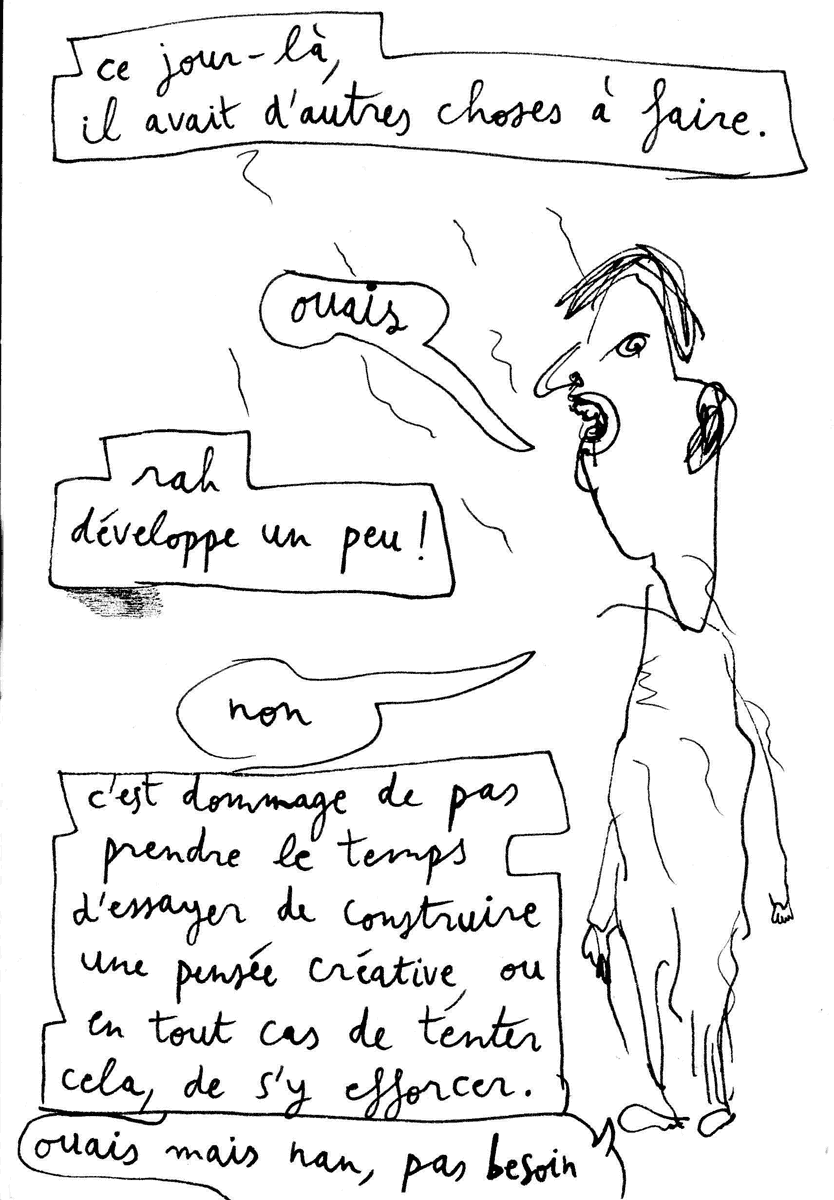 ce jour-là,
il avait d'autres choses à faire.
ouais
rah
développe un peu !
non
c'est dommage de pas
prendre le temps
d'essayer de construire
une pensée créative, ou
en tout cas de tenter
cela, de s'y efforcer.
ouais mais nan, pas besoin